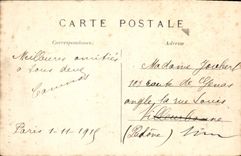 CARTE POSTALE
Correspondance
Adresse
Meilleures amitiés
à tous deux
Paris 1-11-1915
Madame Joubert
101 route de Genas
angle, la rue Louis
Villeurbanne
(Rhône)